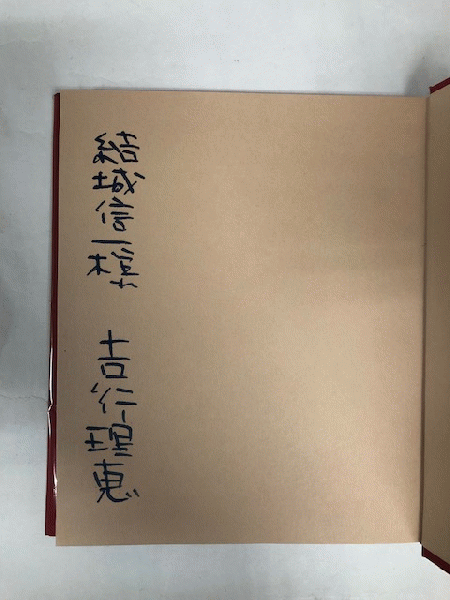 結城信一様
吉行理恵